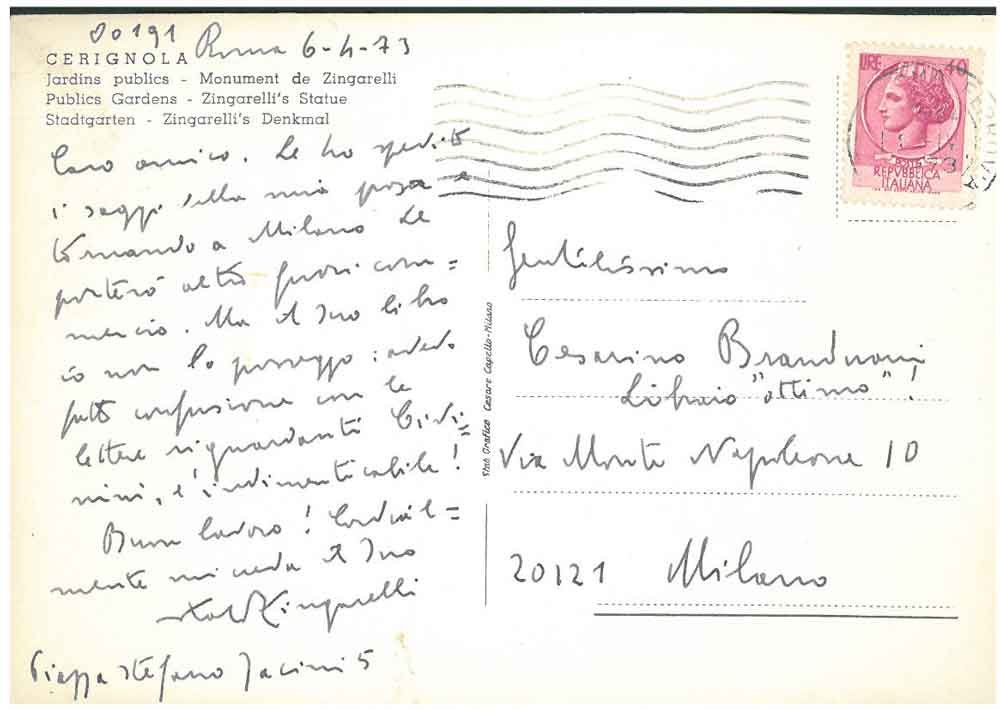 00191 Roma 6-4-73
CERIGNOLA
Jardins publics - Monument de Zingarelli
Publics Gardens - Zingarelli's Statue
Stadtgarten - Zingarelli's Denkmal
Caro amico. Le ho spedito
i saggi sulla mia poesia e
tornando a Milano Le
porterò altro fuori com=
mercio. Ma il Suo libro
io non lo posseggo: avevo
fatto confusione con le
lettere riguardanti
mini, è indimenticabile!
Buon lavoro! Cordial=
mente mi creda il Suo
Zingarelli
Piazza Stefano Jacini 5
Stab. Grafico Cesare Capello-Milano
LIRE 40
POSTE
REPVBBLICA
ITALIANA
Gentilissimo
Cesarino Branduani
Libraio "ottimo"!
Via Monte Napoleone 10
20121 Milano